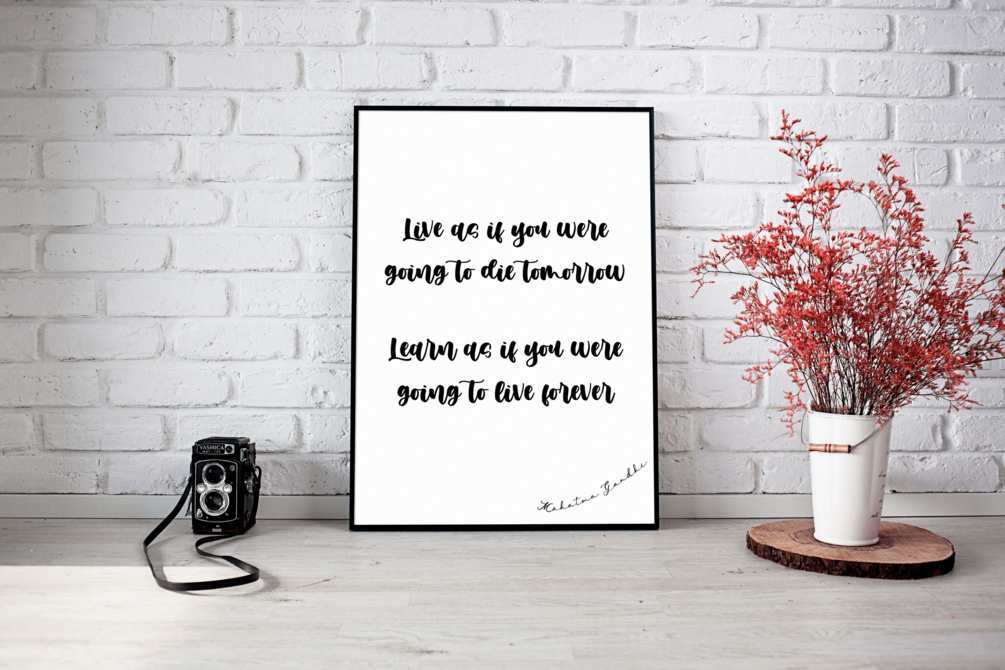 YASHICA
Live as if you were
going to die tomorrow
Learn as if you were
going to live forever
Mahatma Gandhi